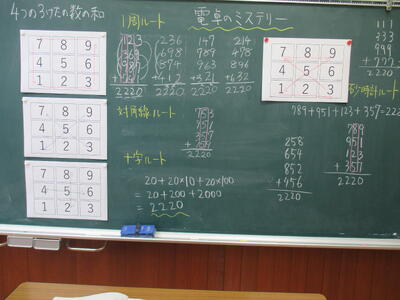 4つの3けたの数の和
電卓のミステリー
7 8 9
4 5 6
1 2 3
7 8 9
4 5 6
1 2 3
7 8 9
4 5 6
1 2 3
1周ルート
123
369
987
+741
2220
236
698
874
+412
2220
147
789
963
+321
2220
214
478
896
+632
2220
対角線ルート
753
951
357
2220
十字ルート
20+20×10+20×100
=20+200+2000
=2220
7 8 9
4 5 6
1 2 3
111
333
999
+777
2220
789+951+123+357=222
258
654
852
+456
2220
789
951
123
+357
2220